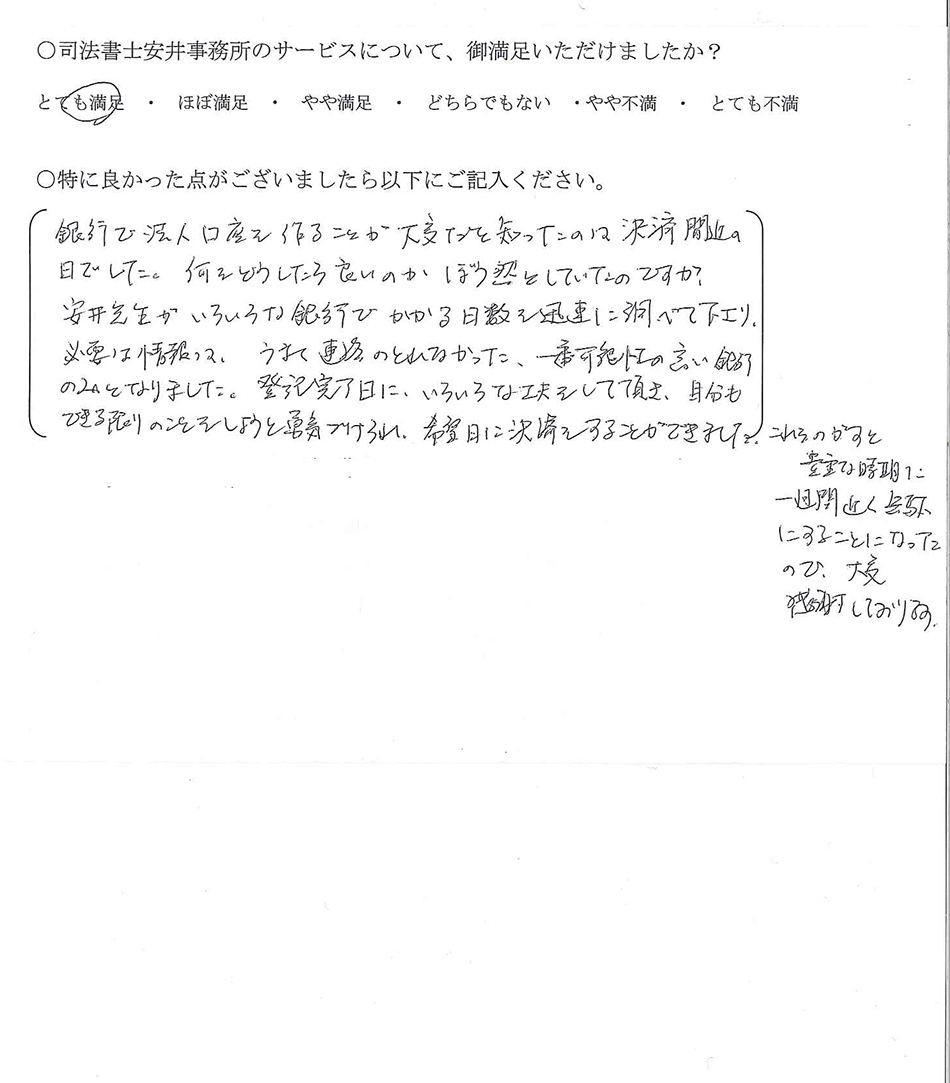 ○司法書士安井事務所のサービスについて、御満足いただけましたか？
とても満足 ・ ほぼ満足 ・ やや満足 ・ どちらでもない ・やや不満 ・ とても不満
○特に良かった点がございましたら以下にご記入ください。
銀行で法人口座を作ることが大変だと知ったのは決済間近の
日でした。何をどうしたら良いのかぼう然としていたのですが、
安井先生がいろいろな銀行でかかる日数を迅速に調べて下さり、
必要な情報は、うまく連絡のとれなかった、一番可能性の高い銀行
のみとなりました。登記完了日に、いろいろな工夫をして頂き、自分も
できる限りのことをしようと勇気づけられ、希望日に決済をすることができました。
これをのがすと
豊重な時期に
一週間近く
にすることになった
ので、大変
感謝しております。